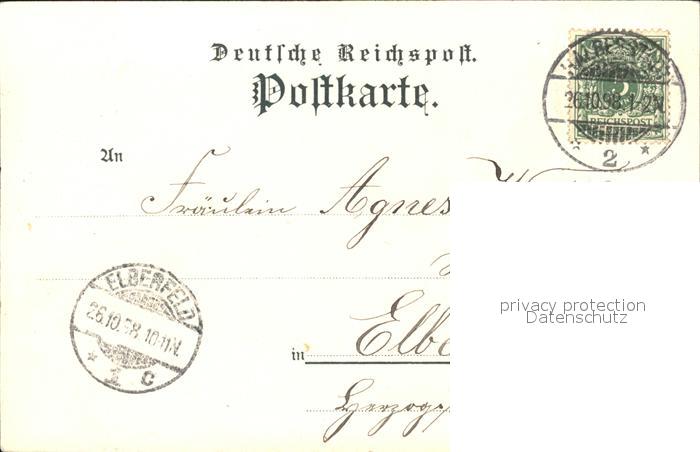 Deutsche Reichspost.
Postkarte.
HALBERSTADT
26.10.98.1-2N.
REICHSPOST
* 2 *
An
Fräulein Agnes
ELBERFELD
26.10.98.10-11V.
* 1 c
in Elbe
Herzog
privacy protection
Datenschutz